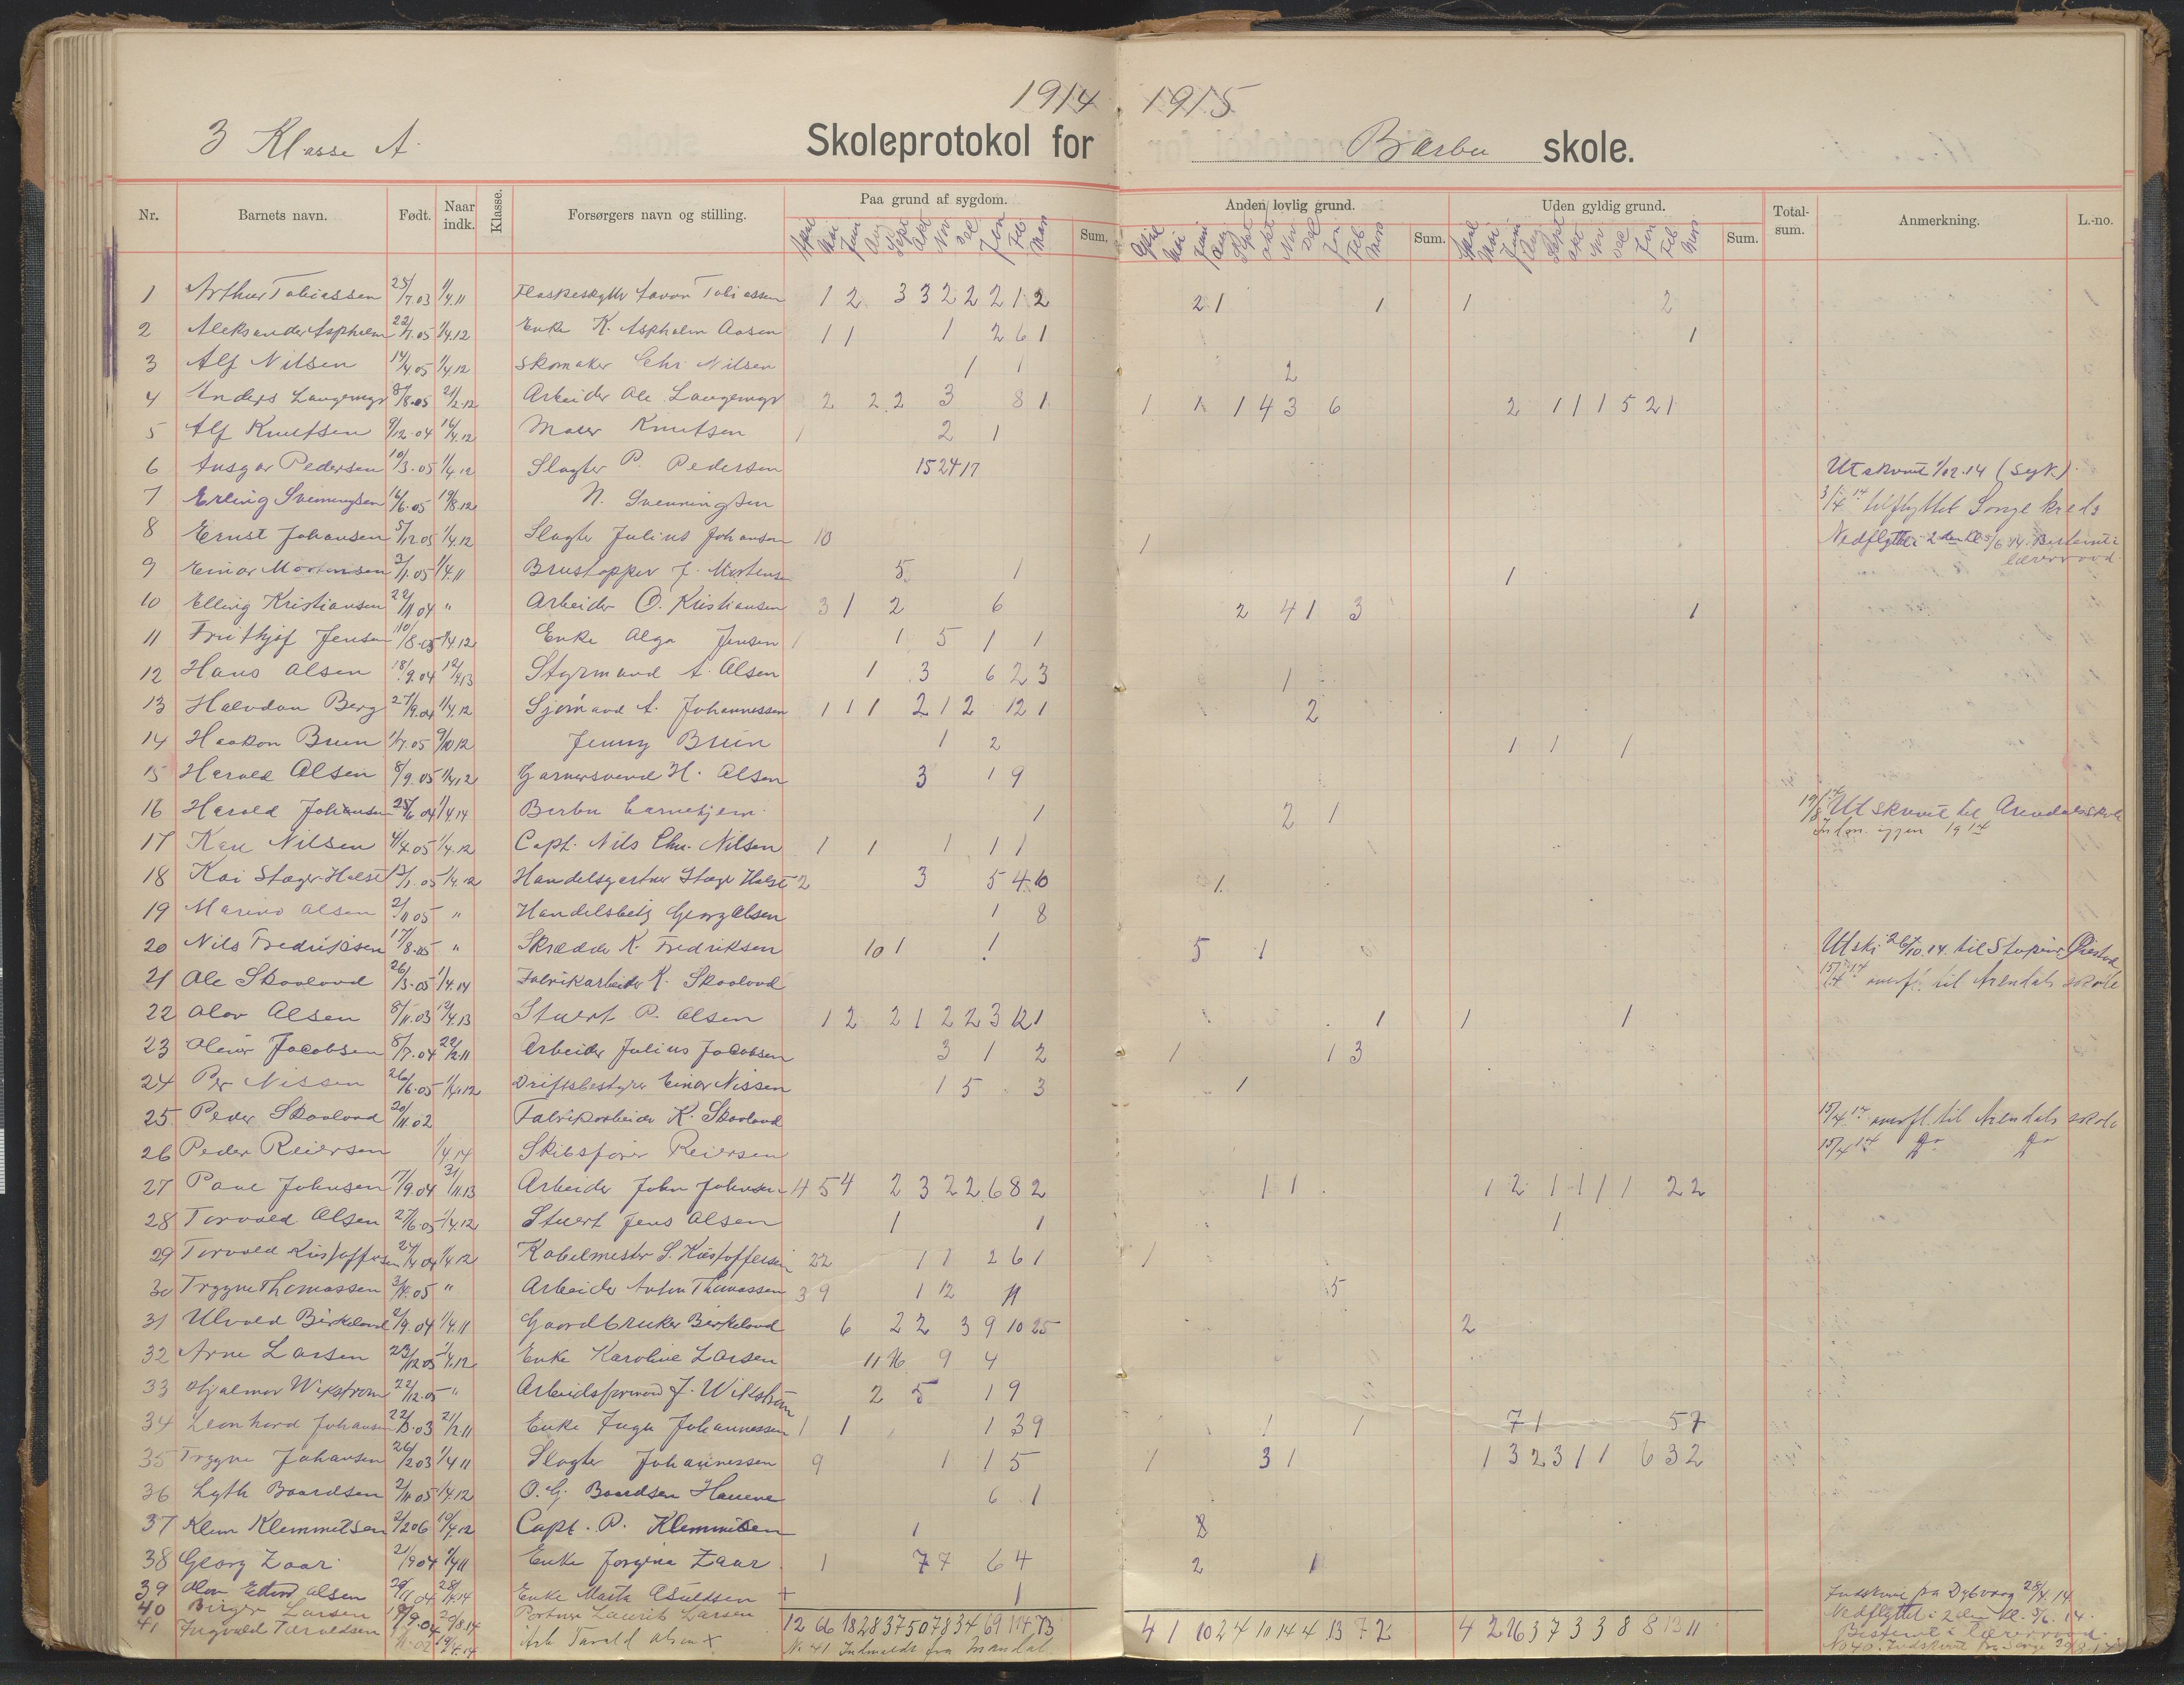 1914 1915
3 Klasse A. Skoleprotokol for Barbu skole.
Nr. Barnets navn. Født. Naar indk. Klasse. Forsørgers navn og stilling. Paa grund af sygdom. Sum. Anden lovlig grund. Sum. Uden gyldig grund. Sum. Total-sum. Anmerkning. L.-no.
April Mai Juni Aug Sept Okt Nov Des Jan Feb Mars April Mai Juni Aug Sept Okt Nov Des Jan Feb Mars April Mai Juni Aug Sept Okt Nov Des Jan Feb Mars
1 Arthur Tobiassen 25/7.03 1/4.11 Tobiassen 1 2 3 3 2 2 2 1 2 2 1 1 1 2
2 Aleksander Aspholm 22/7.05 1/4.12 Enke K. Aspholm Aasen 1 1 1 2 6 1 1
3 Alf Nilsen 14/4.05 1/4.12 Skomaker Chr Nilsen 1 1 2
4 Anders Langemyr 8/8.05 21/2.12 Arbeider Ole Langemyr 2 2 2 3 8 1 1 1 1 4 3 6 2 1 1 1 5 2 1
5 Alf Knutsen 9/12.04 16/4.12 Maler Knutsen 1 2 1
6 Ansgar Pedersen 10/3.05 1/4.12 Slagter P. Pedersen 15 24 17 Utskrevet 1/12.14 (Syk.)
7 Erling Svenningsen 16/6.05 19/8.12 N. Svenningsen 3/4 14 tilflyttet Songe kreds
8 Ernst Johansen 5/12.05 1/4.12 Slagter Julius Johansen 10 1 Nedflyttet i 2den Kl 5/6 14. Bestemt i lærerraad
9 Einar Mortensen 3/1.05 1/4.11 J. Mortensen 5 1 1
10 Elling Kristiansen 22/11 04 " Arbeider O. Kristiansen 3 1 2 6 2 4 1 3 1
11 Frithjof Jensen 10/8.05 1/4.12 Enke Olga Jensen 1 1 5 1 1
12 Hans Olsen 18/9.04 12/4.13 Styrmand A. Olsen 1 3 6 2 3 1
13 Halvdan Berg 27/9.04 1/4.12 Sjømand A. Johannessen 1 1 1 2 1 2 12 1 2
14 Haakon Bruun 1/7.05 9/10 12 Jenny Bruun 1 2 1 1 1
15 Harald Olsen 8/9.05 1/4.12 Garversvend H. Olsen 3 1 9
16 Harald Johansen 25/6 04 1/4.14 Barbu barnehjem 1 2 1 19/8 14 Utskrevet til Arendals skole
Indm. igjen 1914
17 Kare Nilsen 4/4.05 1/4.12 Capt. Nils Chr. Nilsen 1 1 1 1 1
18 Kai Stager-Holst 13/1.05 1/4.12 Handelsgartner Stager Holst 2 3 5 4 10 1
19 Marino Olsen 2/11 05 " Handelsbetj Georg Olsen 1 8
20 Nils Fredriksen 17/8.05 " Skrædder K. Fredriksen 10 1 1 5 1 Utskr 26/10.14. til
21 Ole Skaaland 26/3.05 1/4.14 Fabrikarbeider K. Skaaland 15/4 14 overfl. til Arendals skole
22 Olav Olsen 8/11.03 12/4.13 Stuert P. Olsen 1 2 2 1 2 2 3 12 1 1 1 1
23 Jacobsen 8/7.04 22/2.11 Arbeider Julius Jacobsen 3 1 2 1 1 3
24 Per Nissen 26/6.05 1/4.12 Driftsbestyrer Einar Nissen 1 5 3 1
25 Peder Skaaland 20/11.02 Fabrikarbeider K. Skaaland 15/4 14 overfl. til Arendals skole
26 Peder Reiersen 1/4.14 Skibsfører Reiersen 15/4 14 do do
27 Paul Johnsen 7/9.04 3/11.13 Arbeider John Johnsen 4 5 4 2 3 2 2 6 8 2 1 1 1 2 1 1 1 1 2 2
28 Torvald Olsen 27/6.05 1/4.12 Stuert Jens Olsen 1 1 1
29 Torvald Kristoffersen 24/4 04 1/4 12 Kabelmester S. Kristoffersen 2 2 1 1 2 6 1 1
30 Trygve Thomassen 3/4.05 " Arbeider Anton Thomassen 3 9 1 12 11 5
31 Ulvald Birkeland 2/9.04 1/4.11 Gaardbruker Birkeland 6 2 2 3 9 10 25 2
32 Arne Larsen 23/12 05 1/4.12 Enke Karoline Larsen 11 16 9 4
33 Hjalmar Wikstrøm 22/12.05 " Arbeidsformand J. Wikstrøm 2 5 1 9
34 Leonhard Johansen 22/3.03 21/2.11 Enke Inga Johannessen 1 1 1 3 9 1 1 1 7 1 5 7
35 Trygve Johansen 26/2 03 1/4 11 Slagter Johannessen 9 1 1 5 1 3 1 1 3 2 3 1 1 6 3 2
36 Lyth Baardsen 2/11 05 1/4.12 O. G. Baardsen Havene 6 1
37 Klem Klemmetsen 2/2 06 19/4.12 Capt. P. Klemmetsen 1 8
38 Georg Zaar 21/9 04 1/4 11 Enke Jorgine Zaar 1 7 7 6 4 2 1
39 Olav Olsen 29/11 04 28/4.14 Enke Marta Asuldsen + 1 Indskrevet fra Dybvaag 28/4.14
40 Birger Larsen 1/9.04 20/8.14 Portner Laurits Larsen Nedflyttet i 2den Kl. 5/6.14.
41 Ingvald Taraldsen 02 19/4.14 Arb Tarald Olsen x Bestemt i lærerraad.
12 66 18 28 37 50 78 34 69 114 73 4 1 10 24 10 14 4 13 7 2 4 2 26 3 7 3 3 8 8 13 11
N. 41 Indmeldt fra Mandal. No 40. Indskrevet fra Songe